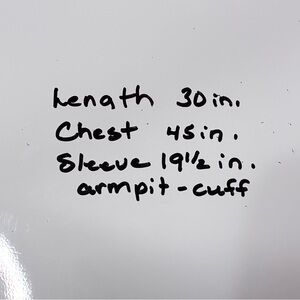 Length 30 in.
Chest 45 in.
Sleeve 19 1/2 in.
armpit - cuff